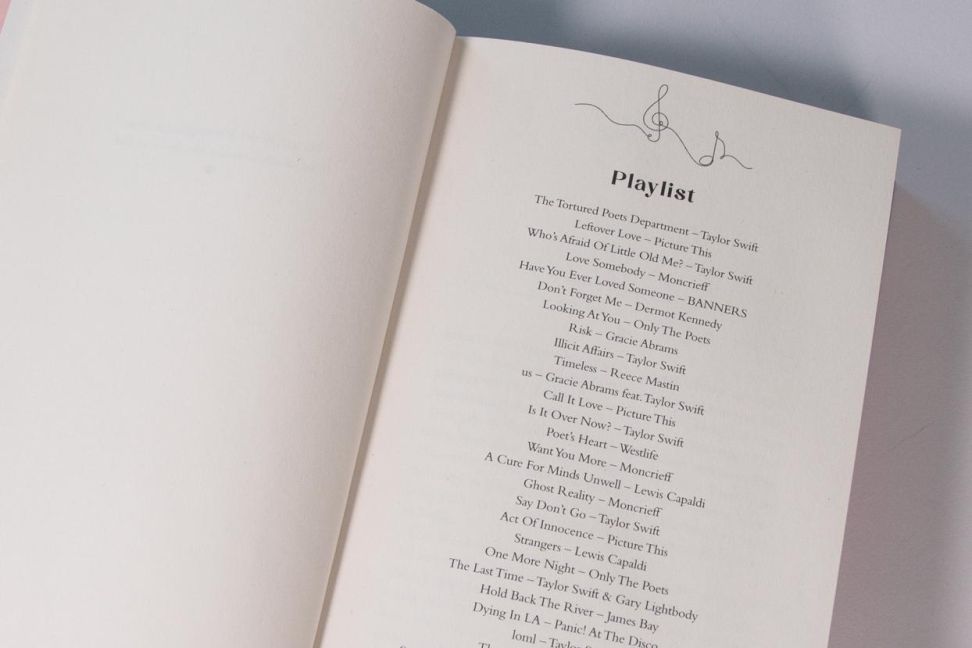 Playlist
The Tortured Poets Department – Taylor Swift
Leftover Love – Picture This
Who's Afraid Of Little Old Me? – Taylor Swift
Love Somebody – Moncrieff
Have You Ever Loved Someone – BANNERS
Don't Forget Me – Dermot Kennedy
Looking At You – Only The Poets
Risk – Gracie Abrams
Illicit Affairs – Taylor Swift
Timeless – Reece Mastin
us – Gracie Abrams feat. Taylor Swift
Call It Love – Picture This
Is It Over Now? – Taylor Swift
Poet's Heart – Westlife
Want You More – Moncrieff
A Cure For Minds Unwell – Lewis Capaldi
Ghost Reality – Moncrieff
Say Don't Go – Taylor Swift
Act Of Innocence – Picture This
Strangers – Lewis Capaldi
One More Night – Only The Poets
The Last Time – Taylor Swift & Gary Lightbody
Hold Back The River – James Bay
Dying In LA – Panic! At The Disco
loml – Taylor